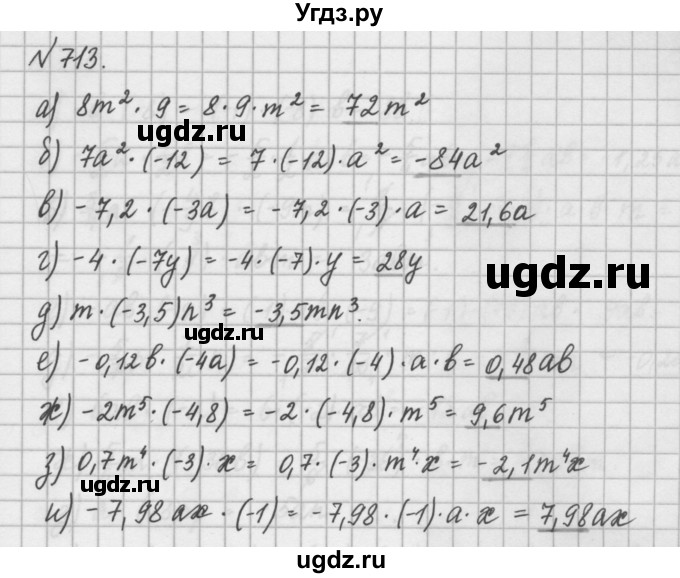 Угдз.ру
№ 713.
а) 8m² · 9 = 8 · 9 · m² = 72m²
ugdz.ru
б) 7a² · (-12) = 7 · (-12) · a² = -84a²
в) -7,2 · (-3a) = -7,2 · (-3) · a = 21,6a
г) -4 · (-7y) = -4 · (-7) · y = 28y
ugdz.ru
д) m · (-3,5)n³ = -3,5mn³.
ugdz.ru
е) -0,12b · (-4a) = -0,12 · (-4) · a · b = 0,48ab
ж) -2m⁵ · (-4,8) = -2 · (-4,8) · m⁵ = 9,6m⁵
з) 0,7m⁴ · (-3) · x = 0,7 · (-3) · m⁴ · x = -2,1m⁴x
ugdz.ru
и) -7,98ax · (-1) = -7,98 · (-1) · a · x = 7,98ax
ugdz.ru